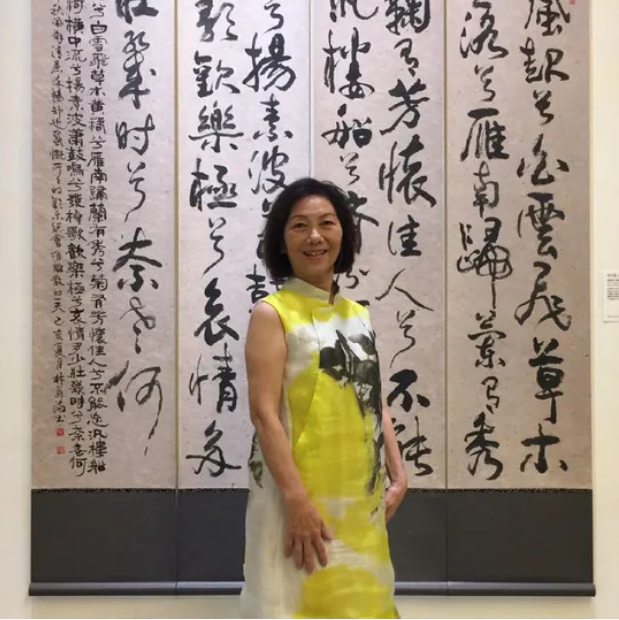 風起兮白雲飛草木
落兮雁南歸蘭有秀
鞠有芳懷佳人兮不能
汎樓船兮濟
兮揚素波
歌歡樂極兮哀情多
壯幾時兮奈老何
兮白雲飛草木黃落兮雁南歸蘭有秀兮菊有芳懷佳人兮不能忘汎樓船
河橫中流兮揚素波簫鼓鳴兮發棹歌歡樂極兮哀情多少壯幾時兮奈老何